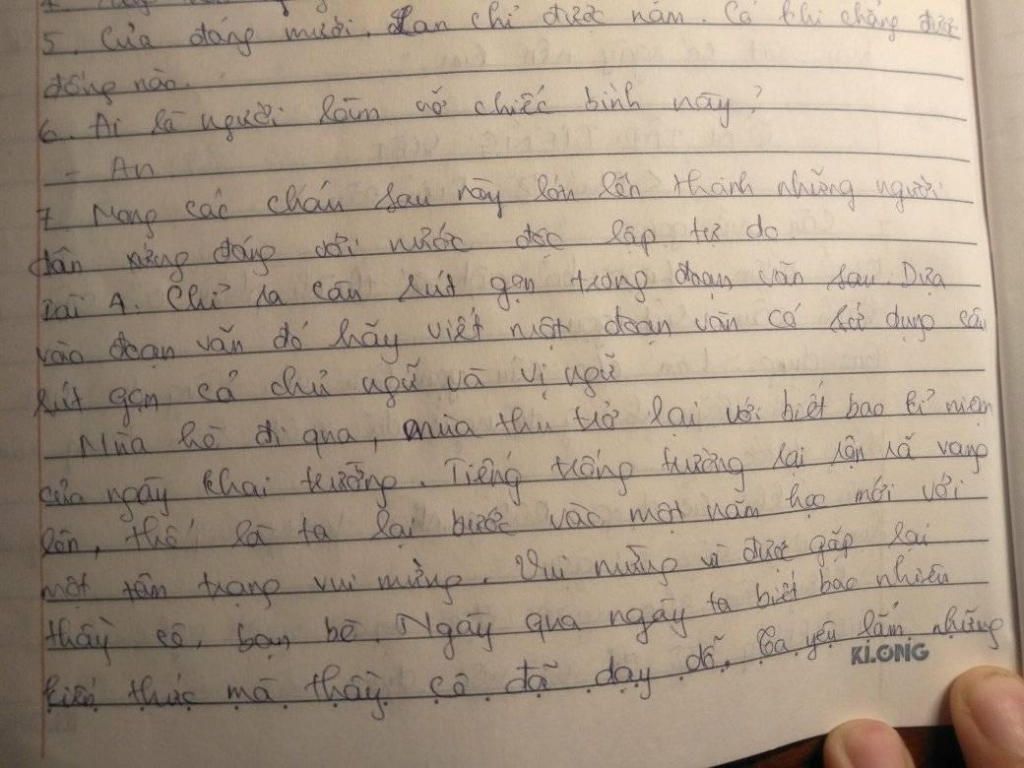 5. Của đáng mười. Lan chỉ được năm. Có khi chẳng được
đồng nào.
6. Ai là người làm vỡ chiếc bình này?
- An
7 Mong các cháu sau này lớn lên thành những người
dân xứng đáng với nước độc lập tự do
Bài 4. Chỉ ra câu rút gọn trong đoạn văn sau. Dựa
vào đoạn văn đó hãy viết một đoạn văn có sử dụng câu
rút gọn cả chủ ngữ và vị ngữ
Mùa hè đi qua, mùa thu trở lại với biết bao kỉ niệm
của ngày khai trường. Tiếng trống trường lại rộn rã vang
lên, thế là ta lại bước vào một năm học mới với
một tâm trạng vui mừng. Vui mừng vì được gặp lại
thầy cô, bạn bè. Ngày qua ngày ta biết bao nhiêu
kiến thức mà thầy cô đã dạy dỗ. Ta yêu lắm những
KLONG